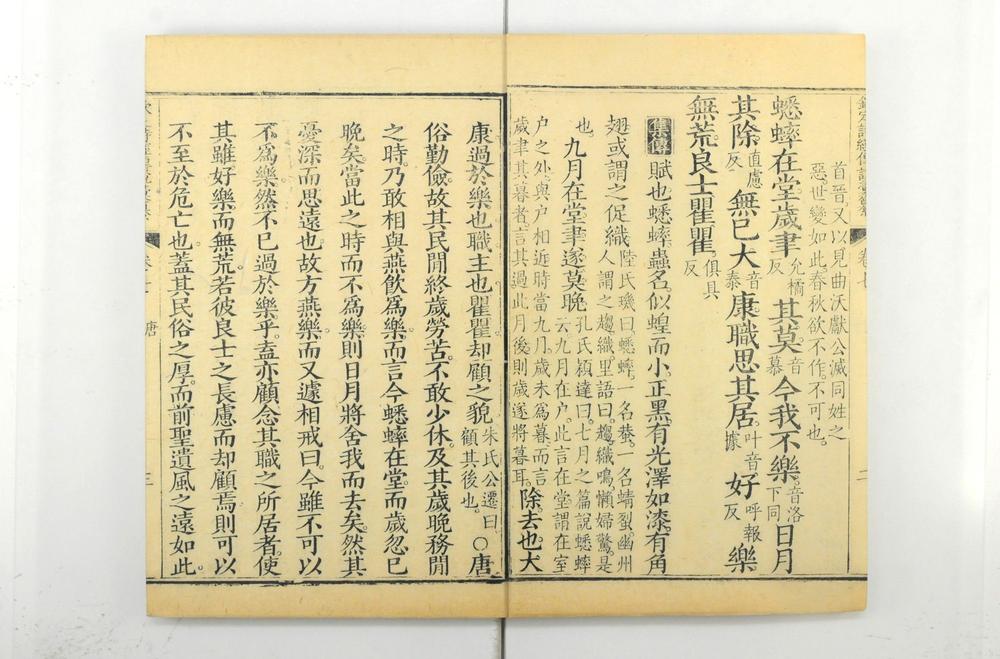 首晉又以見曲沃獻公滅同姓之
惡世變如此春秋欲不作不可也
蟋蟀在堂歲聿允橘反其莫音慕今我不樂音洛下同日月
其除直慮反無已大音泰康職思其居叶音據好呼報反樂
無荒良士瞿瞿俱具反
集傳賦也蟋蟀蟲名似蝗而小正黑有光澤如漆有角
翅或謂之促織陸氏璣曰蟋蟀一名蛬一名蜻蛚幽州人謂之趨織里語曰趨織鳴懶婦驚是也
九月在堂聿遂莫晚孔氏穎達曰七月之篇說蟋蟀云九月在户此言在堂謂在室户之外與户相近時當九月歲未爲暮而言歲聿其暮者言其過此月後則歲遂將暮耳除去也大
康過於樂也職主也瞿瞿却顧之貌朱氏公遷曰顧其後也○唐
俗勤儉故其民閒終歲勞苦不敢少休及其歲晚務閒
之時乃敢相與燕飲爲樂而言今蟋蟀在堂而歲忽已
晚矣當此之時而不爲樂則日月將舍我而去矣然其
憂深而思遠也故方燕樂而又遽相戒曰今雖不可以
不爲樂然不已過於樂乎盍亦顧念其職之所居者使
其雖好樂而無荒若彼良士之長慮而却顧焉則可以
不至於危亡也蓋其民俗之厚而前聖遺風之遠如此
唐
三